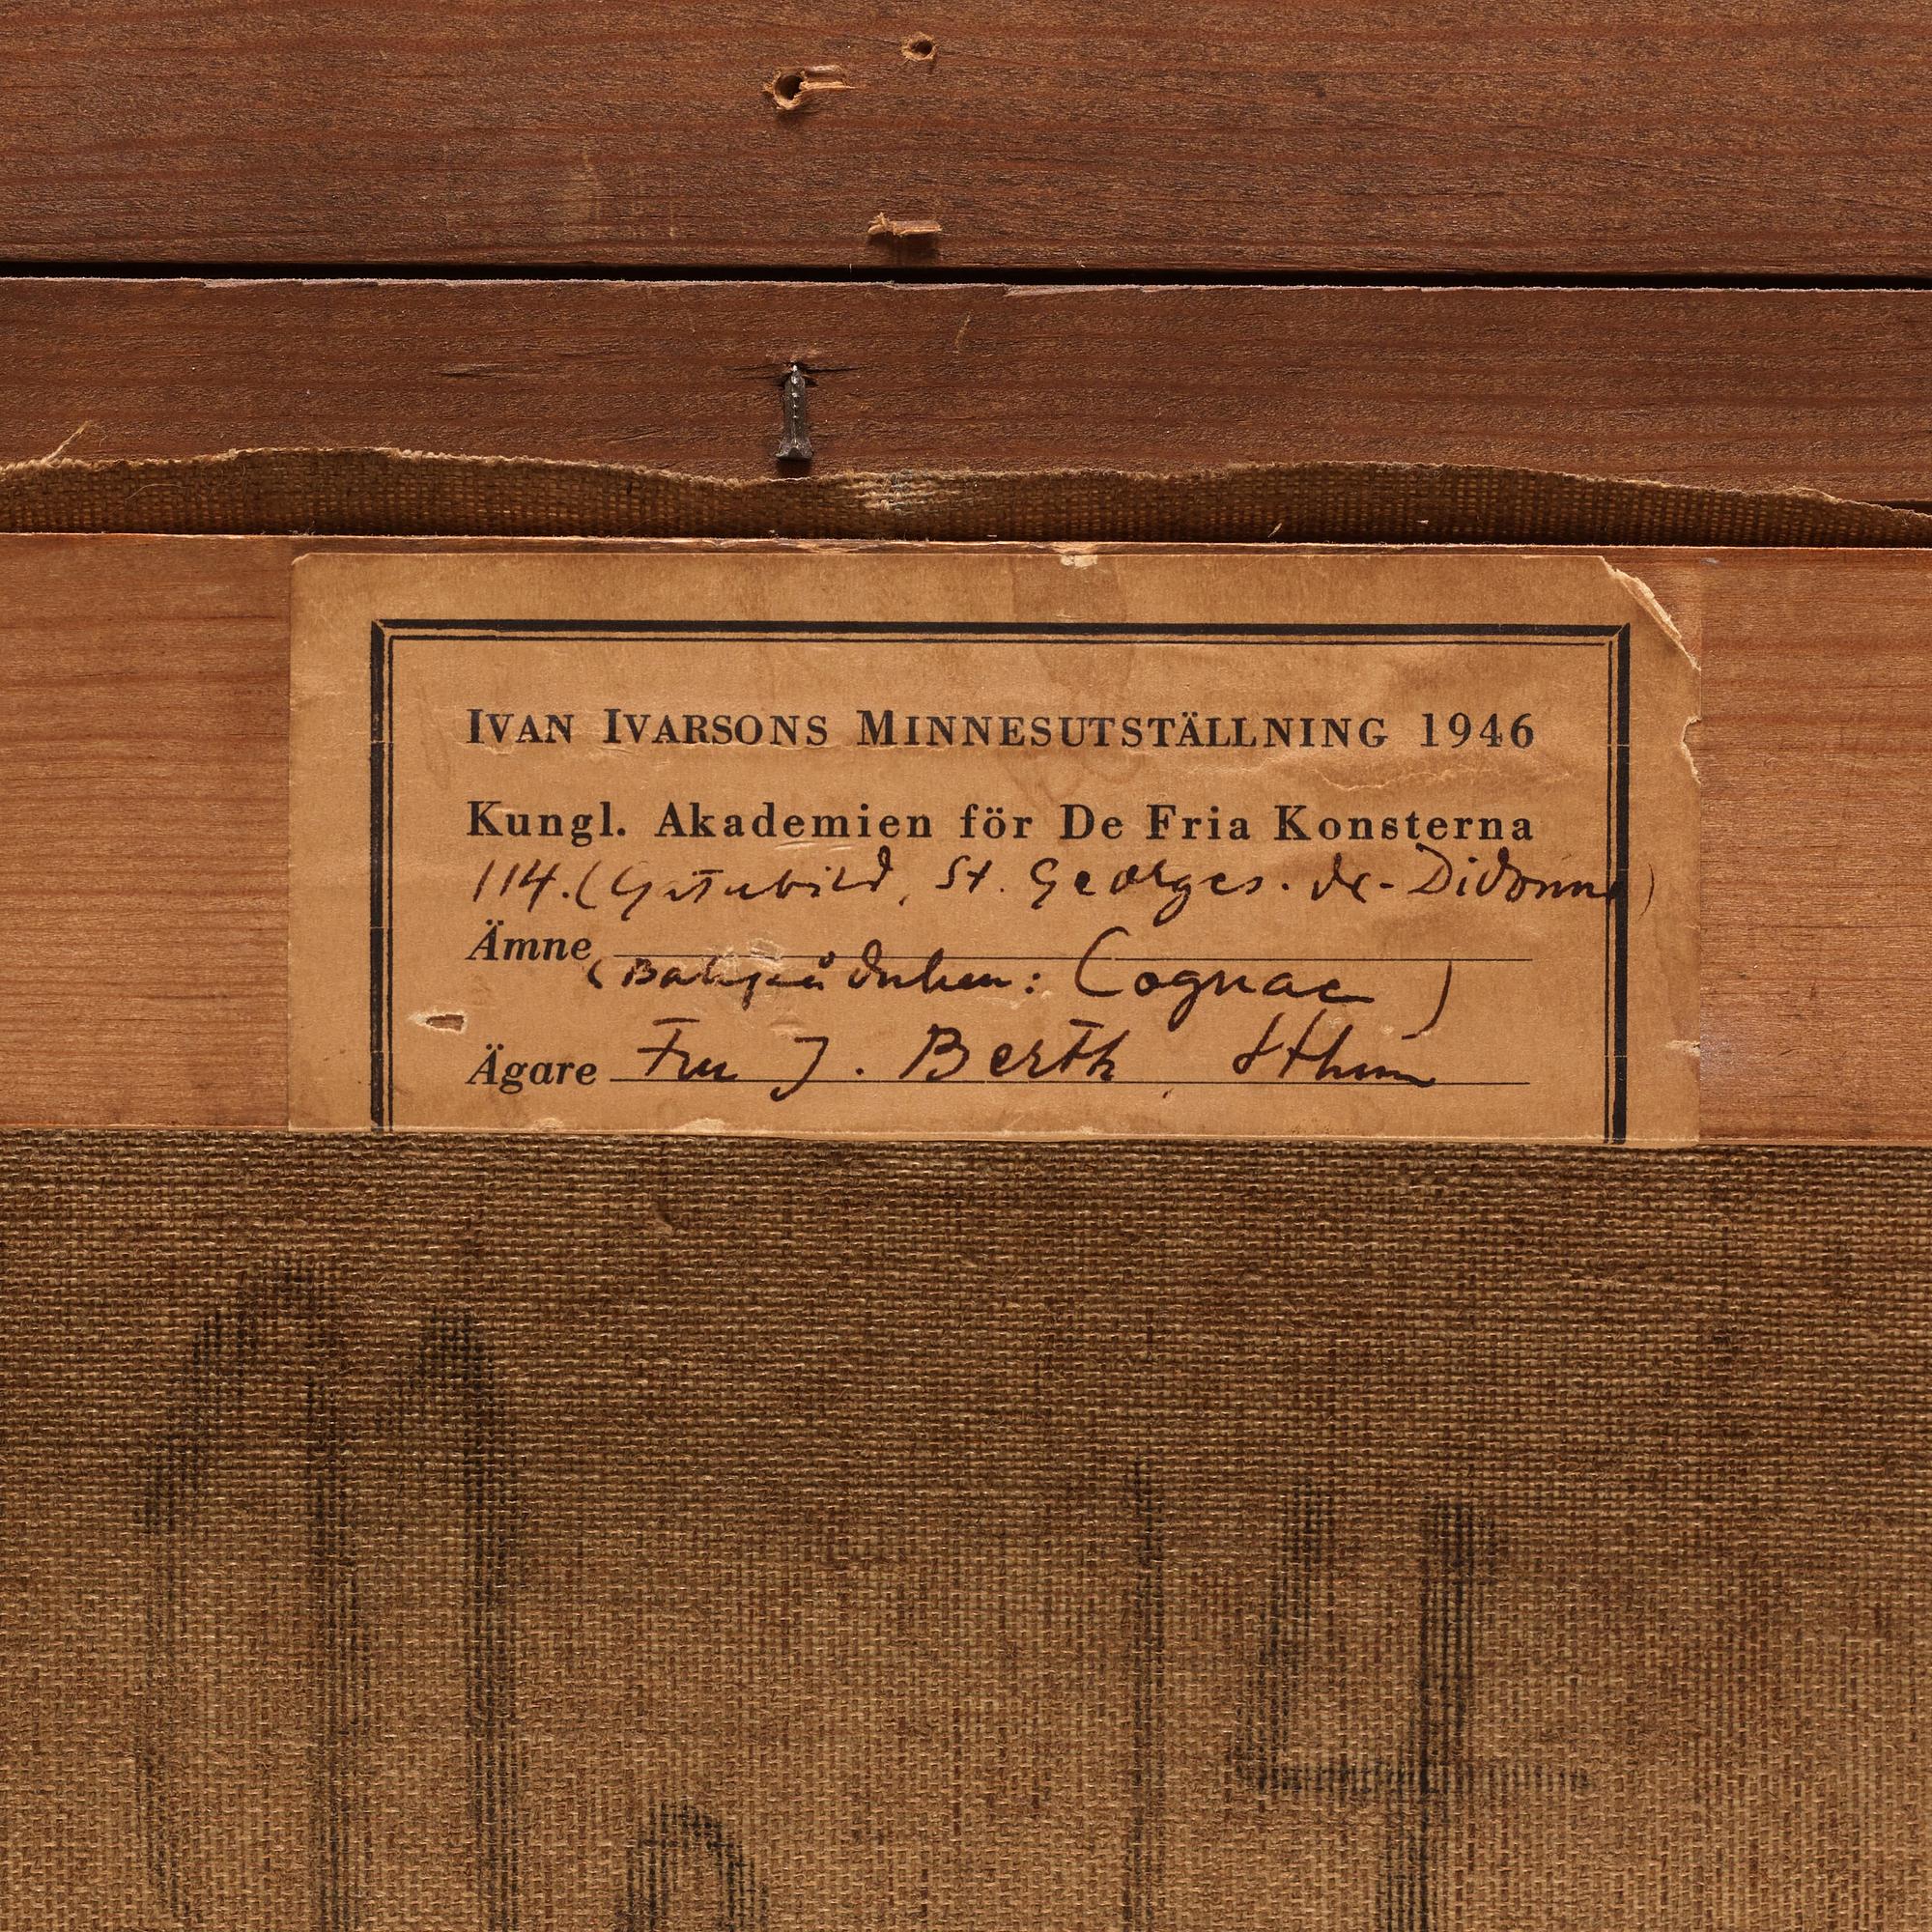 IVAN IVARSONS MINNESUTSTÄLLNING 1946
Kungl. Akademien för De Fria Konsterna
114. (Gatubild, St. Georges. de-Didonne)
Ämne
(Bakpå duken: Cognac)
Ägare Fru J. Berth, Sthlm
No 14